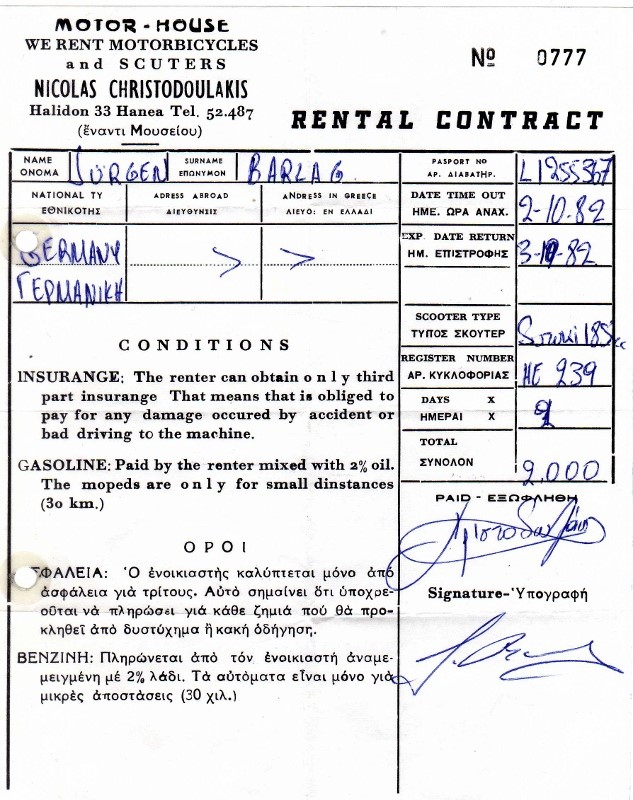 MOTOR - HOUSE
WE RENT MOTORBICYCLES
and SCUTERS
NICOLAS CHRISTODOULAKIS
Halidon 33 Hanea Tel. 52.487
(ἔναντι Μουσείου)
Nº 0777
RENTAL CONTRACT
NAME ΟΝΟΜΑ JÜRGEN SURNAME ΕΠΩΝΥΜΟΝ BARLAG
NATIONAL TY ΕΘΝΙΚΟΤΗΣ
ADRESS ABROAD ΔΙΕΥΘΥΝΣΙΣ
ANDRESS IN GREECE ΔΙΕΥΘ: ΕΝ ΕΛΛΑΔΙ
GERMANY
ΓΕΡΜΑΝΙΚΗ
PASPORT No ΑΡ. ΔΙΑΒΑΤΗΡ. L1255367
DATE TIME OUT ΗΜΕ. ΩΡΑ ΑΝΑΧ. 2-10.82
EXP. DATE RETURN ΗΜ. ΕΠΙΣΤΡΟΦΗΣ 3-10-82
SCOOTER TYPE ΤΥΠΟΣ ΣΚΟΥΤΕΡ 185cc
REGISTER NUMBER ΑΡ. ΚΥΚΛΟΦΟΡΙΑΣ HE 239
DAYS X
ΗΜΕΡΑΙ X
TOTAL ΣΥΝΟΛΟΝ 2.000
PAID - ΕΞΩΦΛΗΘΗ
Signature-Ὑπογραφή
CONDITIONS
INSURANGE: The renter can obtain only third
part insurange That means that is obliged to
pay for any damage occured by accident or
bad driving to the machine.
GASOLINE: Paid by the renter mixed with 2% oil.
The mopeds are only for small dinstances
(30 km.)
ΟΡΟΙ
ΣΦΑΛΕΙΑ: Ὁ ἐνοικιαστής καλύπτεται μόνο ἀπό
ἀσφάλεια γιὰ τρίτους. Αὐτό σημαίνει ὅτι ὑποχρε-
οῦται νὰ πληρώσει γιά κάθε ζημιά πού θὰ προ-
κληθεῖ ἀπό δυστύχημα ἤ κακή ὁδήγηση.
ΒΕΝΖΙΝΗ: Πληρώνεται ἀπό τόν ἐνοικιαστή ἀναμε-
μειγμένη μέ 2% λάδι. Τὰ αὐτόματα εἶναι μόνο γιὰ
μικρές ἀποστάσεις (30 χιλ.)